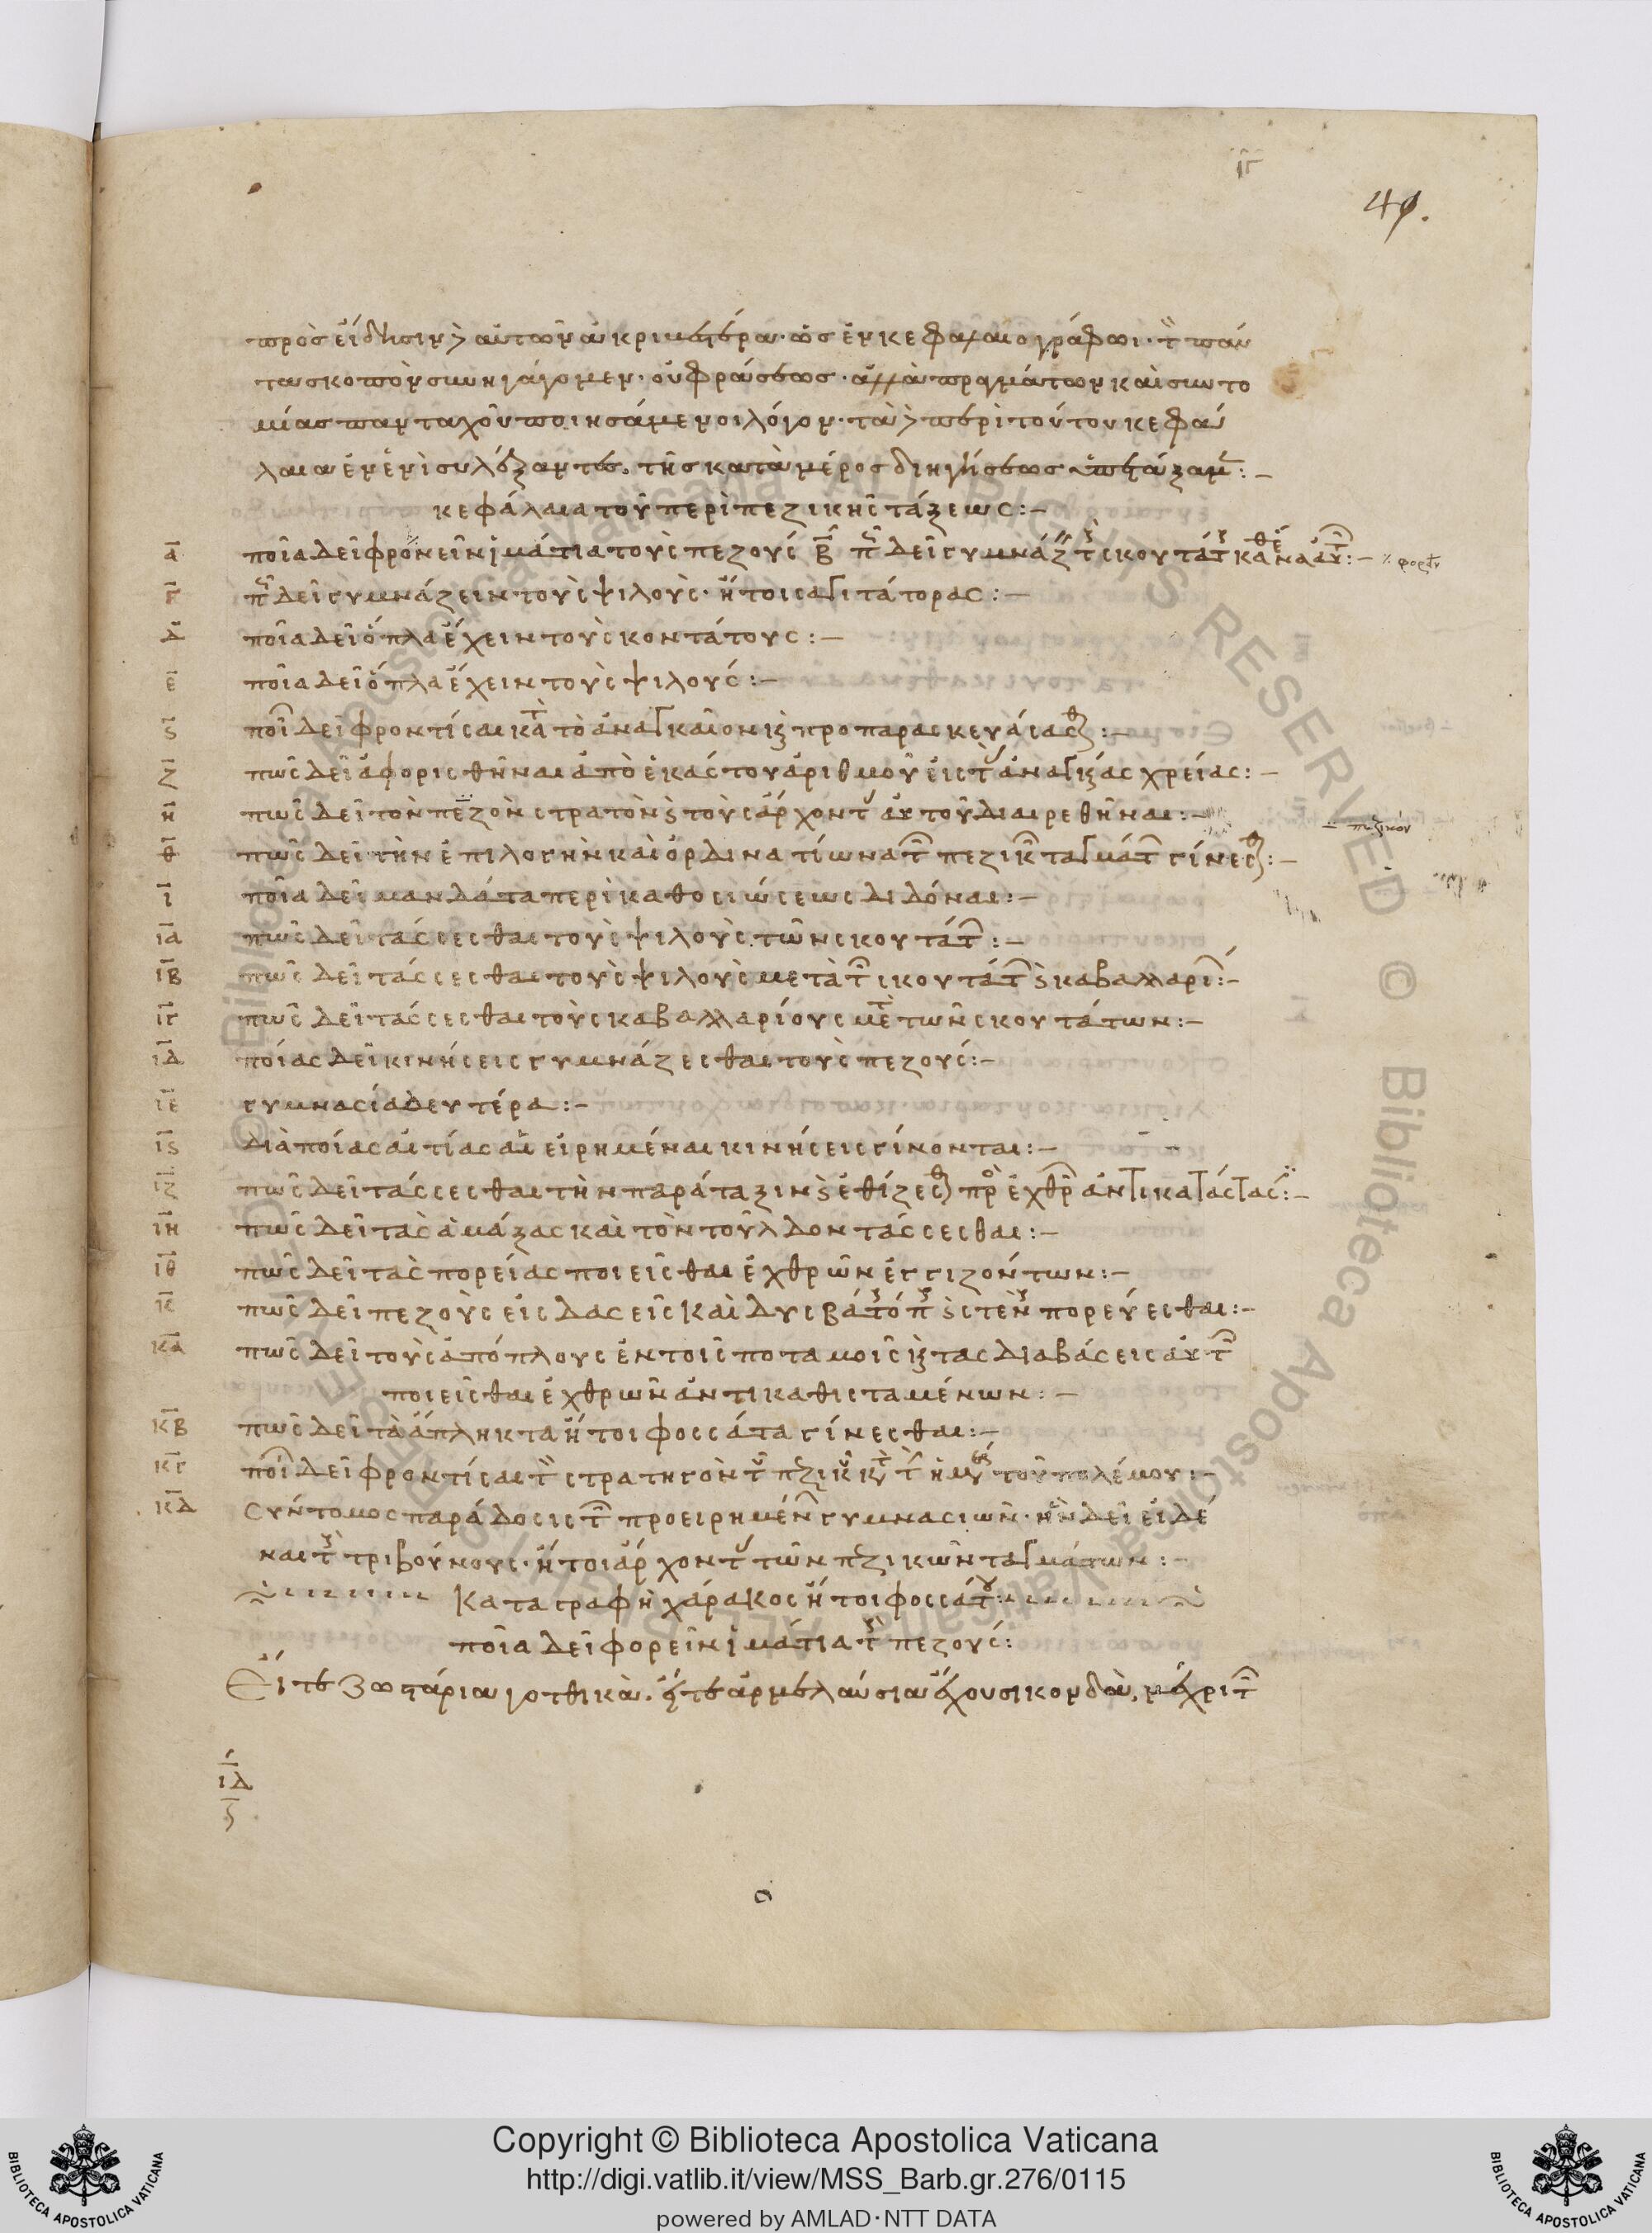 ιγ
49.
πρὸς εἴδησιν δὲ αὐτῶν ἀκριβεστέραν. ὡς ἐν κεφαλαιογράφωι. τὸν πάν
τα σκοπὸν συνηγάγομεν. οὐ φράσεως. ἀλλὰ πραγμάτων καὶ συντο
μίας πανταχοῦ ποιησάμενοι λόγον. τὰ δὲ περὶ τούτου κεφά
λαια ἐν ἑνὶ συλλέξαντες. τῆς κατὰ μέρος διηγήσεως ὑπετάξαμεν:-
κεφάλαια τοῦ περὶ πεζικῆς τάξεως:-
α ποῖα δεῖ φρονεῖν ἱμάτια τοὺς πεζούς β πῶς δεῖ γυμνάζειν τοὺς σκουτάτους καθ ἕνα αὐτῶν:-
γ πῶς δεῖ γυμνάζειν τοὺς ψιλούς. ἤτοι σαγιτάτορας:-
δ ποῖα δεῖ ὅπλα ἔχειν τοὺς κοντάτους:-
ε ποῖα δεῖ ὅπλα ἔχειν τοὺς ψιλούς:-
ς ποίων δεῖ φροντίσαι κατὰ τὸ ἀναγκαῖον καὶ προπαρασκευάσασθαι:-
ζ πῶς δεῖ ἀφορισθῆναι ἀπὸ ἑκάστου ἀριθμοῦ εἰς τὰς ἀναγκαίας χρείας:-
η πῶς δεῖ τὸν πεζὸν στρατὸν καὶ τοὺς ἄρχοντας αὐτοῦ διαιρεθῆναι:-
πεζικόν
θ πῶς δεῖ τὴν ἐπιλογὴν καὶ ὀρδινατίωνα τῶν πεζικῶν ταγμάτων γίνεσθαι:-
ι ποῖα δεῖ μανδάτα περὶ καθοσιώσεως διδόναι:-
ια πῶς δεῖ τάσσεσθαι τοὺς ψιλοὺς τῶν σκουτάτων:-
ιβ πῶς δεῖ τάσσεσθαι τοὺς ψιλοὺς μετὰ τῶν σκουτάτων καὶ καβαλλαρίων:-
ιγ πῶς δεῖ τάσσεσθαι τοὺς καβαλλαρίους μετὰ τῶν σκουτάτων:-
ιδ ποίας δεῖ κινήσεις γυμνάζεσθαι τοὺς πεζούς:-
ιε γυμνασία δευτέρα:-
ις διὰ ποίας αἰτίας αἱ εἰρημέναι κινήσεις γίνονται:-
ιζ πῶς δεῖ τάσσεσθαι τὴν παράταξιν καὶ ἐθίζεσθαι πρὸς ἐχθρῶν ἀντικατάστασιν:-
ιη πῶς δεῖ τὰς ἁμάξας καὶ τὸν τοῦλδον τάσσεσθαι:-
ιθ πῶς δεῖ τὰς πορείας ποιεῖσθαι ἐχθρῶν ἐγγιζόντων:-
κ πῶς δεῖ πεζοὺς εἰς δασεῖς καὶ δυσβάτους τόπους καὶ στενοὺς πορεύεσθαι:-
κα πῶς δεῖ τοὺς ἀπόπλους ἐν τοῖς ποταμοῖς καὶ τὰς διαβάσεις αὐτῶν
ποιεῖσθαι ἐχθρῶν ἀντικαθισταμένων:-
κβ πῶς δεῖ τὰ ἄπληκτα ἤτοι φοσσάτα γίνεσθαι:-
κγ ποίων δεῖ φροντίσαι τὸν στρατηγὸν τοῦ πεζικοῦ κατὰ τὴν ἡμέραν τοῦ πολέμου:-
κδ σύντομος παράδοσις τῶν προειρημένων γυμνασιῶν. ἣν δεῖ εἰδέ
ναι τοὺς τριβούνους. ἤτοι ἄρχοντας τῶν πεζικῶν ταγμάτων:-
Καταγραφὴ χάρακος ἤτοι φοσσάτου:
ποῖα δεῖ φορεῖν ἱμάτια τοὺς πεζούς:
Εἴτε ζωστάρια γοτθικὰ. εἴτε ἁρμελαύσια ἔχουσι κονδὰ, μέχρι τῶν
ιδ
ς